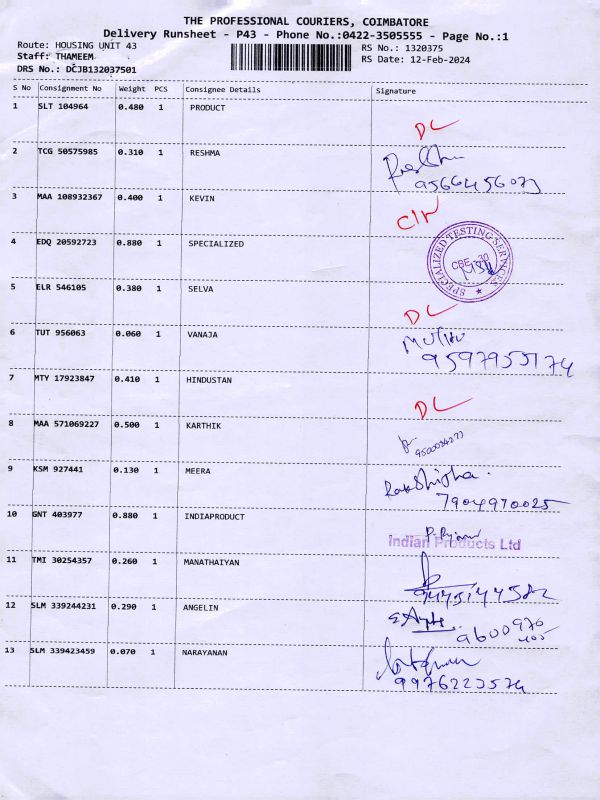 THE PROFESSIONAL COURIERS, COIMBATORE
Delivery Runsheet - P43 - Phone No.:0422-3505555 - Page No.:1
Route: HOUSING UNIT 43 RS No.: 1320375
Staff: THAMEEM RS Date: 12-Feb-2024
DRS No.: DCJB132037501
S No Consignment No Weight PCS Consignee Details Signature
1 SLT 104964 0.480 1 PRODUCT DL
2 TCG 50575985 0.310 1 RESHMA
9566456073
3 MAA 108932367 0.400 1 KEVIN
4 EDQ 20592723 0.880 1 SPECIALIZED SPECIALIZED TESTING SERVICES CBE - 30
5 ELR 546105 0.380 1 SELVA DL
6 TUT 956063 0.060 1 VANAJA MUTHU
9597955174
7 MTY 17923847 0.410 1 HINDUSTAN DL
8 MAA 571069227 0.500 1 KARTHIK
9 KSM 927441 0.130 1 MEERA
7904970025
10 GNT 403977 0.880 1 INDIAPRODUCT Indian Products Ltd
11 TMI 30254357 0.260 1 MANATHAIYAN
12 SLM 339244231 0.290 1 ANGELIN
9600970
405
13 SLM 339423459 0.070 1 NARAYANAN
9976223574